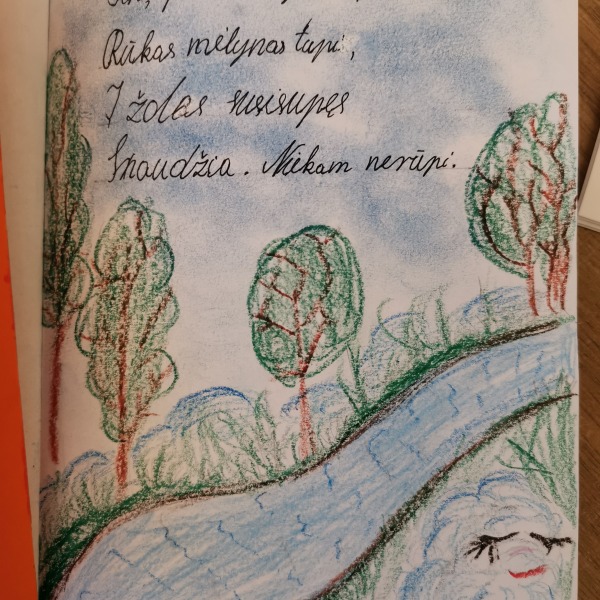 Rūkas mėlynas tupi,
Į ždas susisupęs
Snaudžia. Niekam nerūpi.